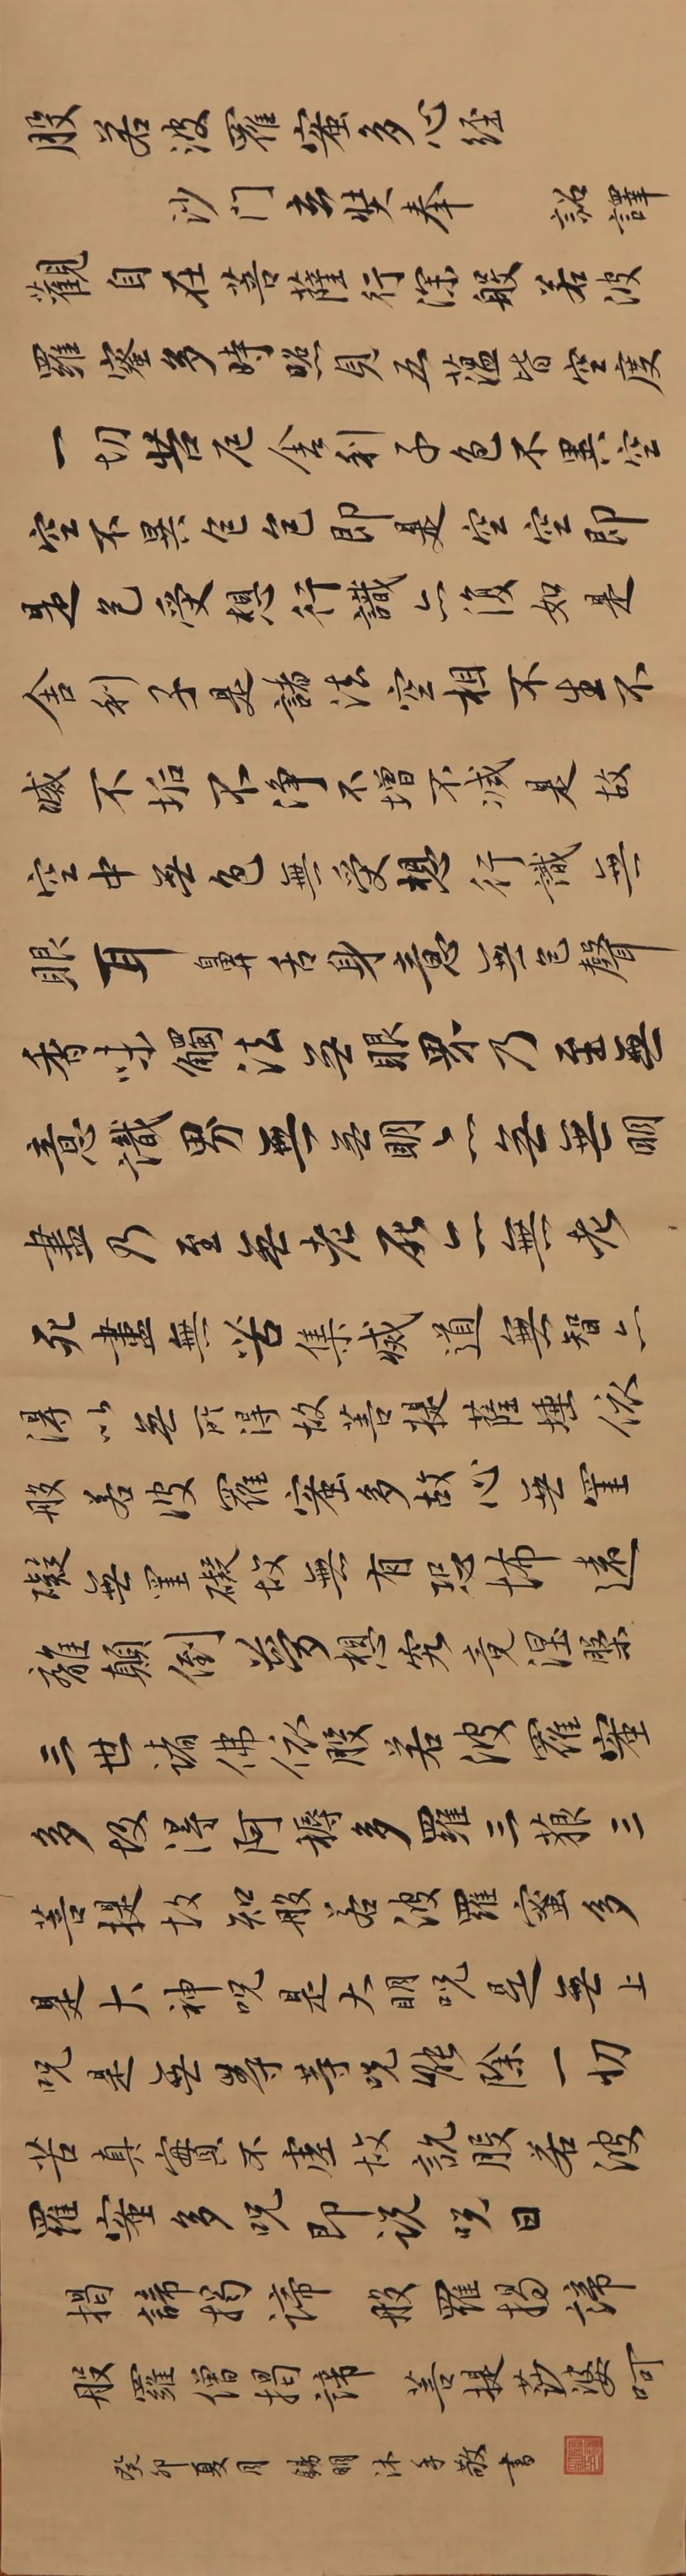 般若波羅蜜多心经
沙门玄奘奉 詔譯
觀自在菩薩行深般若波
羅蜜多時照見五蘊皆空度
一切苦厄舍利子色不異空
空不異色色即是空空即
是色受想行識亦復如是
舍利子是諸法空相不生不
滅不垢不淨不增不减是故
空中無色無受想行識無
眼耳鼻舌身意無色聲
香味觸法無眼界乃至無
意識界無無明亦無無明
盡乃至無老死亦無老
死盡無苦集滅道無智亦
得以無所得故菩提薩埵依
般若波羅蜜多故心無罣
礙無罣礙故無有恐怖遠
離顛倒夢想究竟涅槃
三世諸佛依般若波羅蜜
多故得阿耨多羅三藐三
菩提故知般若波羅蜜多
是大神咒是大明咒是無上
咒是無等等咒能除一切
苦真實不虛故說般若波
羅蜜多咒即说咒曰
揭諦揭谛 般羅揭諦
般羅僧揭諦 菩提莎婆呵
癸卯夏月 錫明沐手敬書